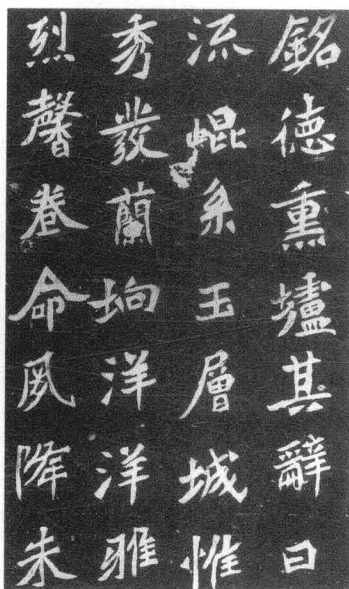 銘德熏壚其辭曰
流崐系玉層城惟
秀發蘭坰洋洋雅
烈馨春命夙降朱